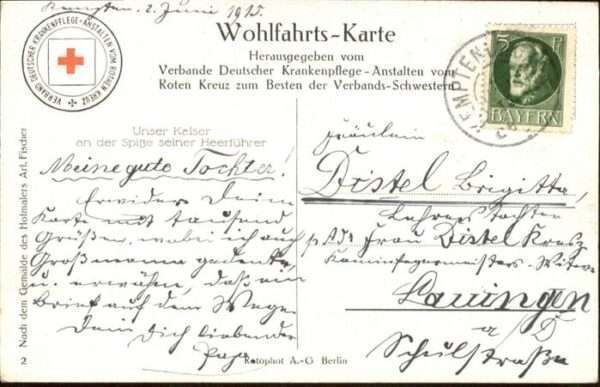 Kempten, 2. Juni 1915.
Wohlfahrts-Karte
Herausgegeben vom
Verbande Deutscher Krankenpflege-Anstalten vom
Roten Kreuz zum Besten der Verbands-Schwestern
VERBAND DEUTSCHER KRANKENPFLEGE-ANSTALTEN VOM ROTEN KREUZ
5 Pf
BAYERN
KEMPTEN
Unser Kaiser
an der Spitze seiner Heerführer
Meine gute Tochter!
Erwidere Deine
Karte mit tausend
Grüßen, wobei ich auch
Großmama gedenke,
u. erwähne, daß ein
Brief auf dem Wege.
Dein Dich liebender
Papa
Fräulein
Distel Brigitta,
Lehrers Tochter
Frau Distel
Kaminfegermeisters-Witwe
Lauingen
a/D
Schulstraße
Nach dem Gemälde des Hofmalers Art. Fischer
2
Rotophot A.-G Berlin